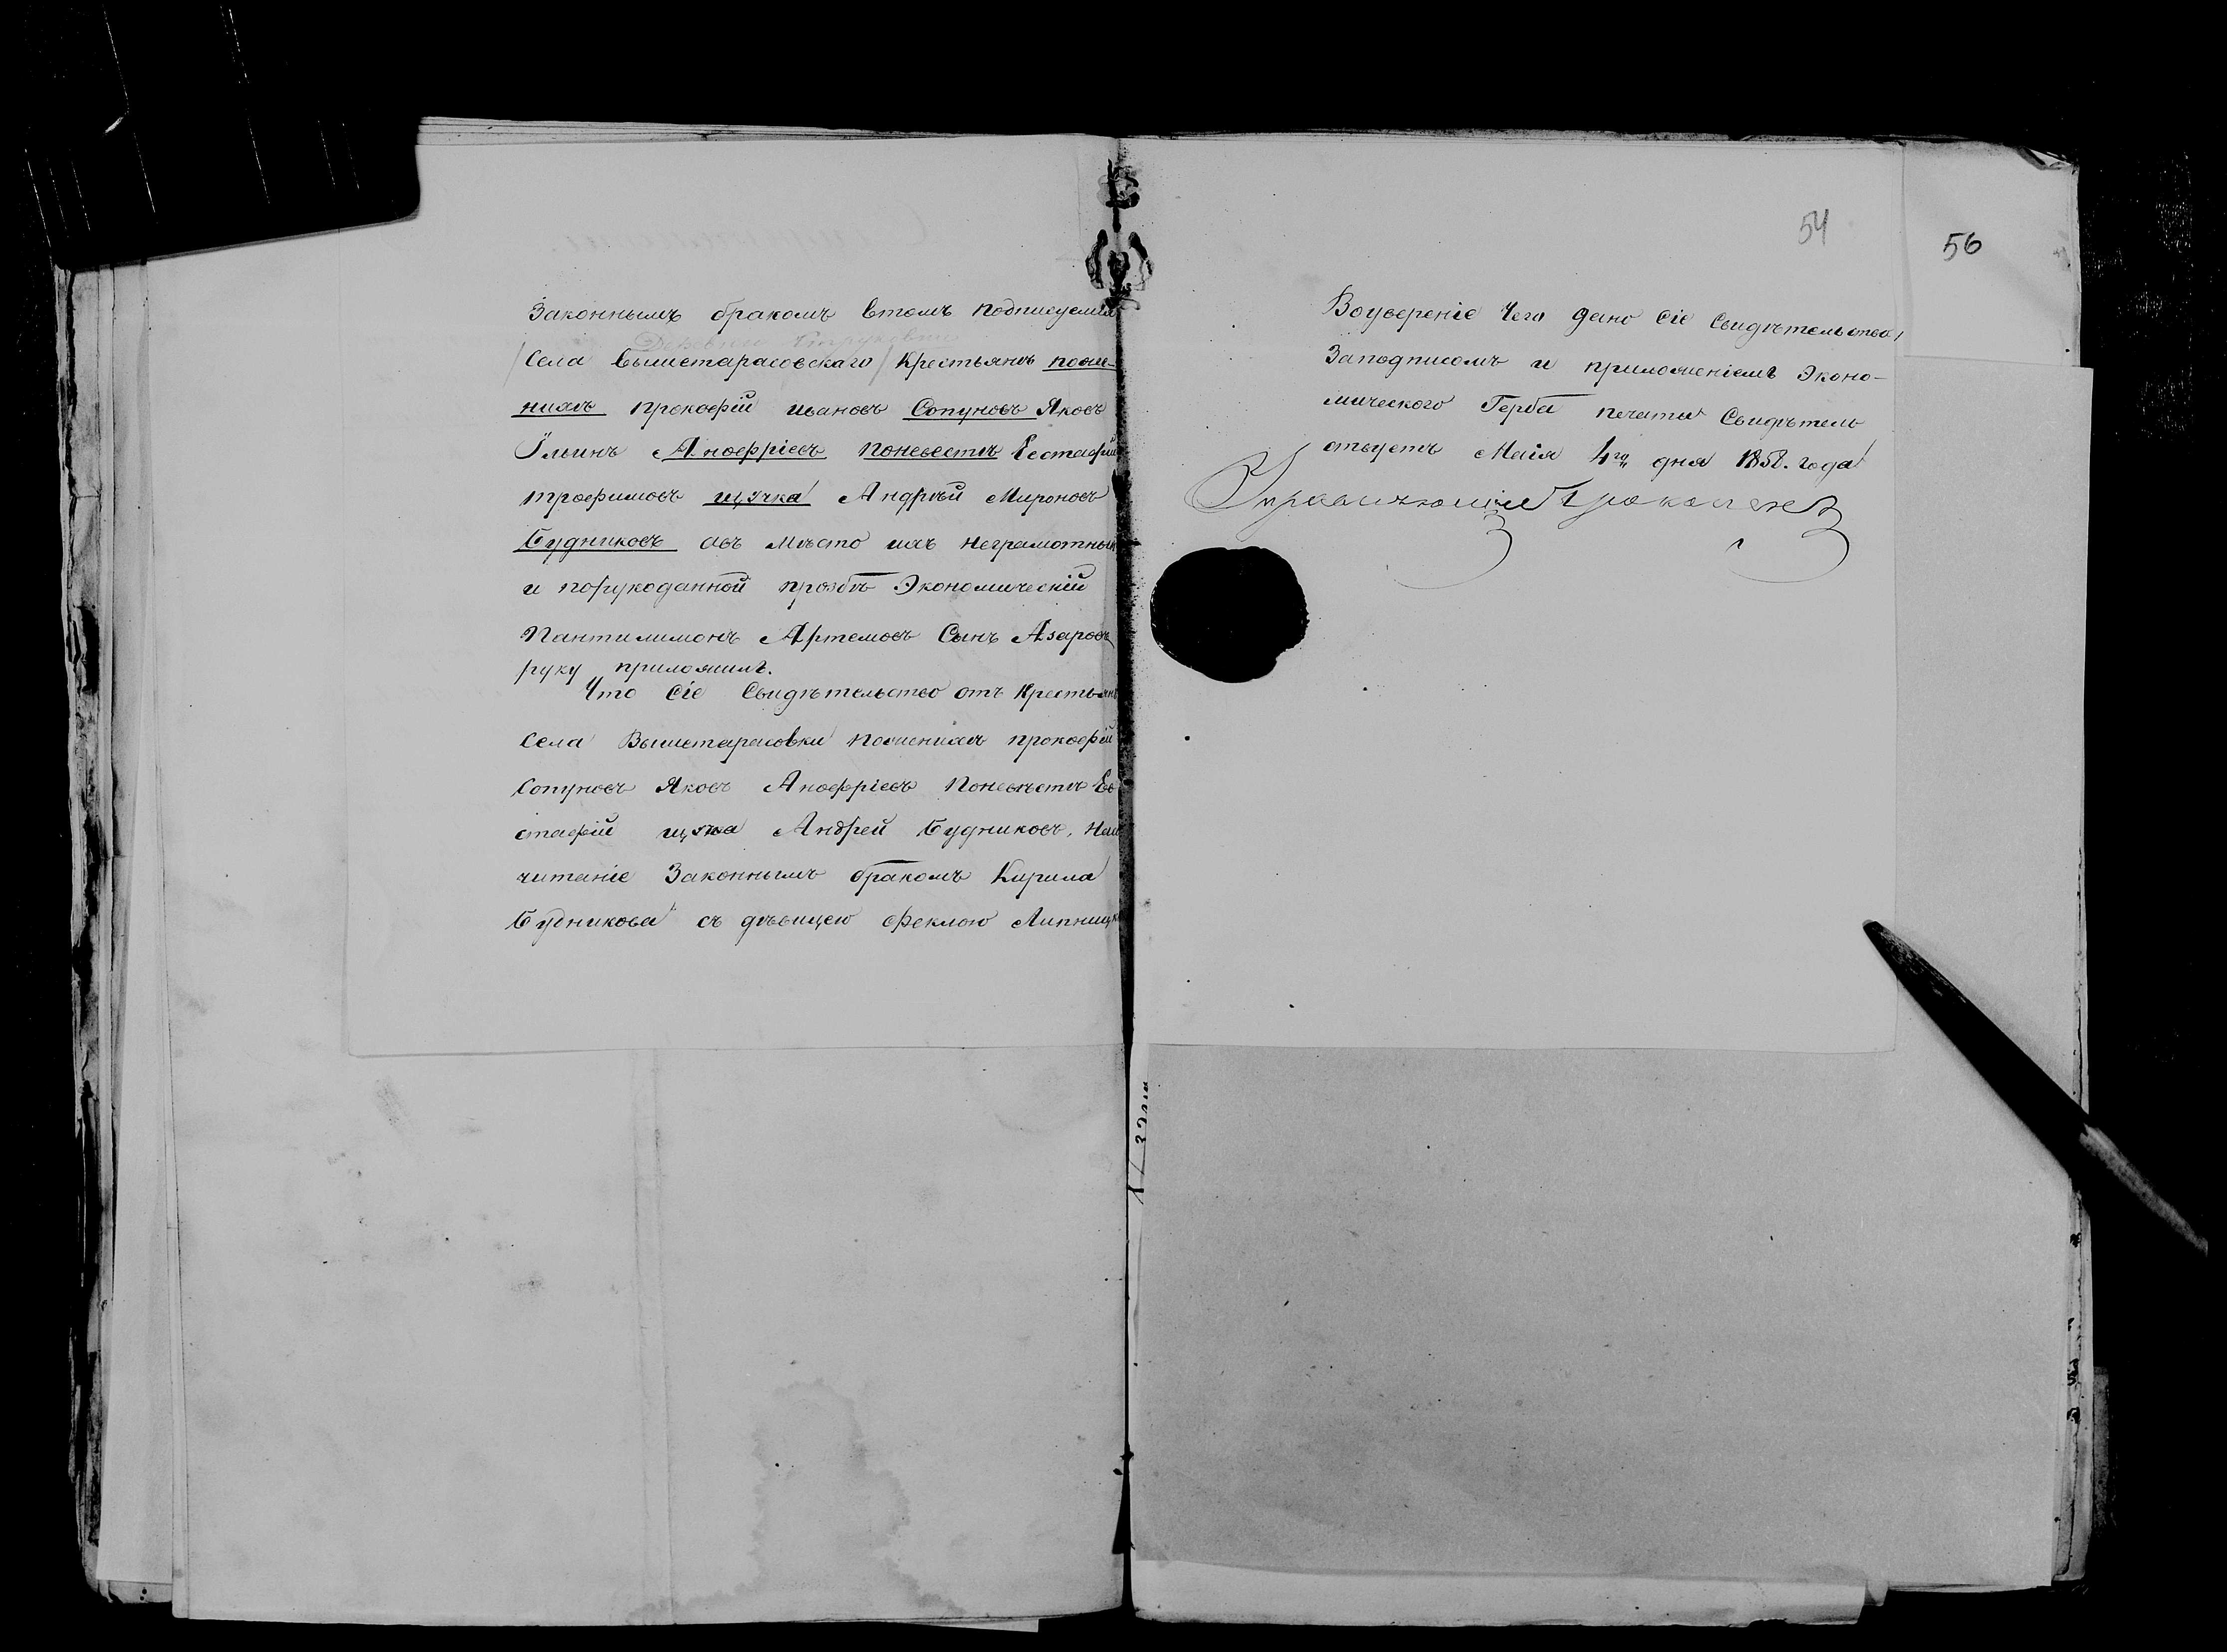 Законнымъ бракомъ втомъ подписуемся
Села Вышетарасовскаго Крестьянъ поже-
нихъ прокофій ивановъ Сопуновъ Яковъ
Ильинъ Анофріевъ поневестъ Еєстафій
трофимовъ Андрѣй Мироновъ
Будниковъ авъ Мѣсто ихъ неграмотных
и порукоданной прозбѣ Экономическій
Пантилимонъ Артемовъ Сынъ Азаровъ
руку приложилъ.
Что сіе Свидѣтельство отъ Крестьянъ
Села Вышетарасовки поженихъ прокофій
Сопуновъ Яковъ Анофріевъ Поневѣстъ Ев
стафій Андрей Будниковъ,
читаніе Законнымъ бракомъ Кирила
Будникова съ дѣвицею Феклою Липницк
54
56
Воувереніе Чего дано сіе Свидѣтельство,
Заподписомъ и приложеніемъ Эконо-
мическаго Герба печаты Свидѣтель
ствуетъ Маія 4го дня 1858. года